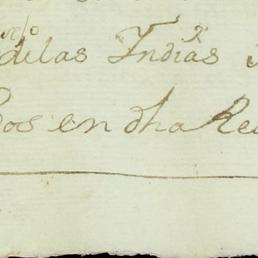 delas Indias
dos en dha Rea